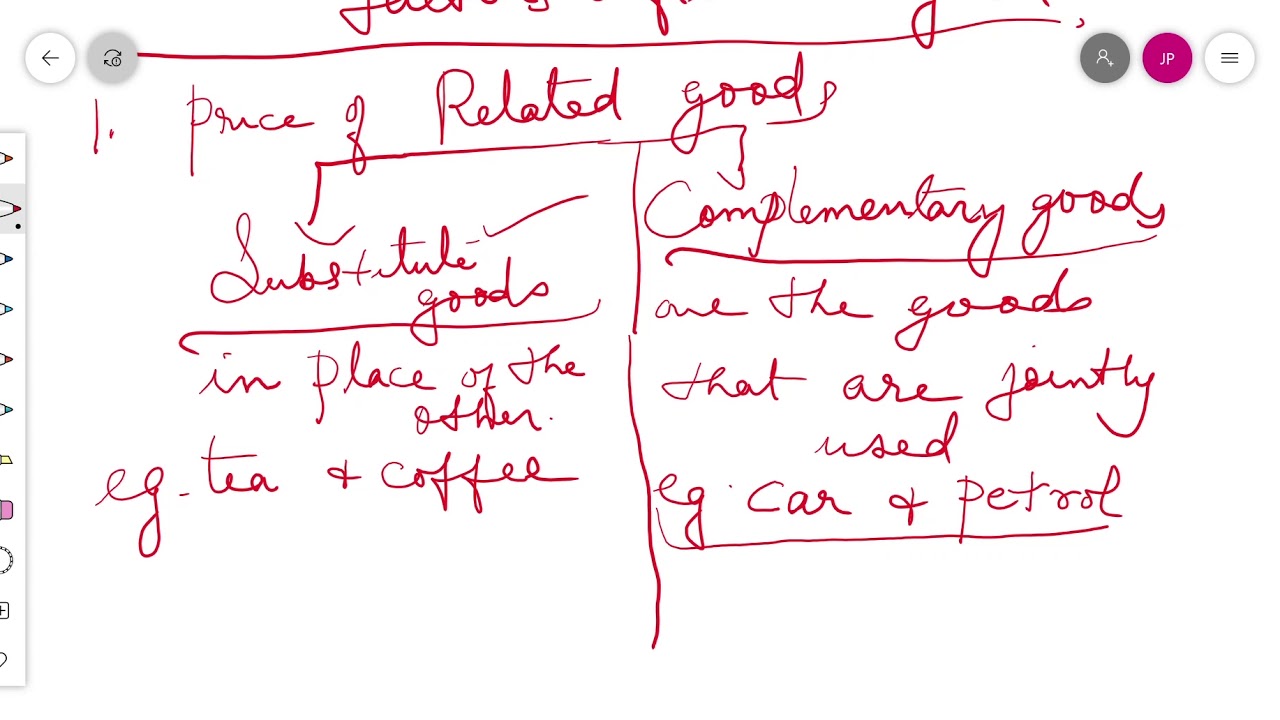 1. Price of Related goods
Substitute
goods
in place of the
other.
eg. tea & coffee
Complementary goods
are the goods
that are jointly
used
eg. car & petrol
JP